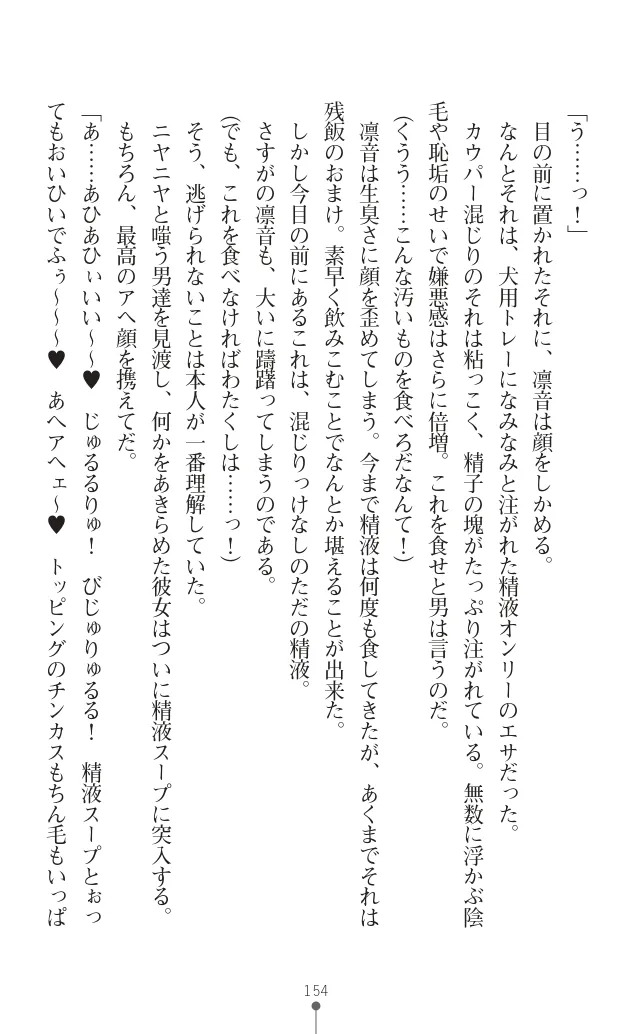 「う……っ！」
目の前に置かれたそれに、凛音は顔をしかめる。
なんとそれは、犬用トレーになみなみと注がれた精液オンリーのエサだった。
カウパー混じりのそれは粘っこく、精子の塊がたっぷり注がれている。無数に浮かぶ陰
毛や恥垢のせいで嫌悪感はさらに倍増。これを食せと男は言うのだ。
（くうう……こんな汚いものを食べろだなんて！）
凛音は生臭さに顔を歪めてしまう。今まで精液は何度も食してきたが、あくまでそれは
残飯のおまけ。素早く飲みこむことでなんとか堪えることが出来た。
しかし今目の前にあるこれは、混じりっけなしのただの精液。
さすがの凛音も、大いに躊躇ってしまうのである。
（でも、これを食べなければわたくしは……っ！）
そう、逃げられないことは本人が一番理解していた。
ニヤニヤと嗤う男達を見渡し、何かをあきらめた彼女はついに精液スープに突入する。
もちろん、最高のアヘ顔を携えてだ。
「あ……あひあひぃいい～～♥　じゅるるりゅ！　びじゅりゅるる！　精液スープとぉっ
てもおいひいでふぅ～～～♥　あへアヘェ～♥　トッピングのチンカスもちん毛もいっぱ
154